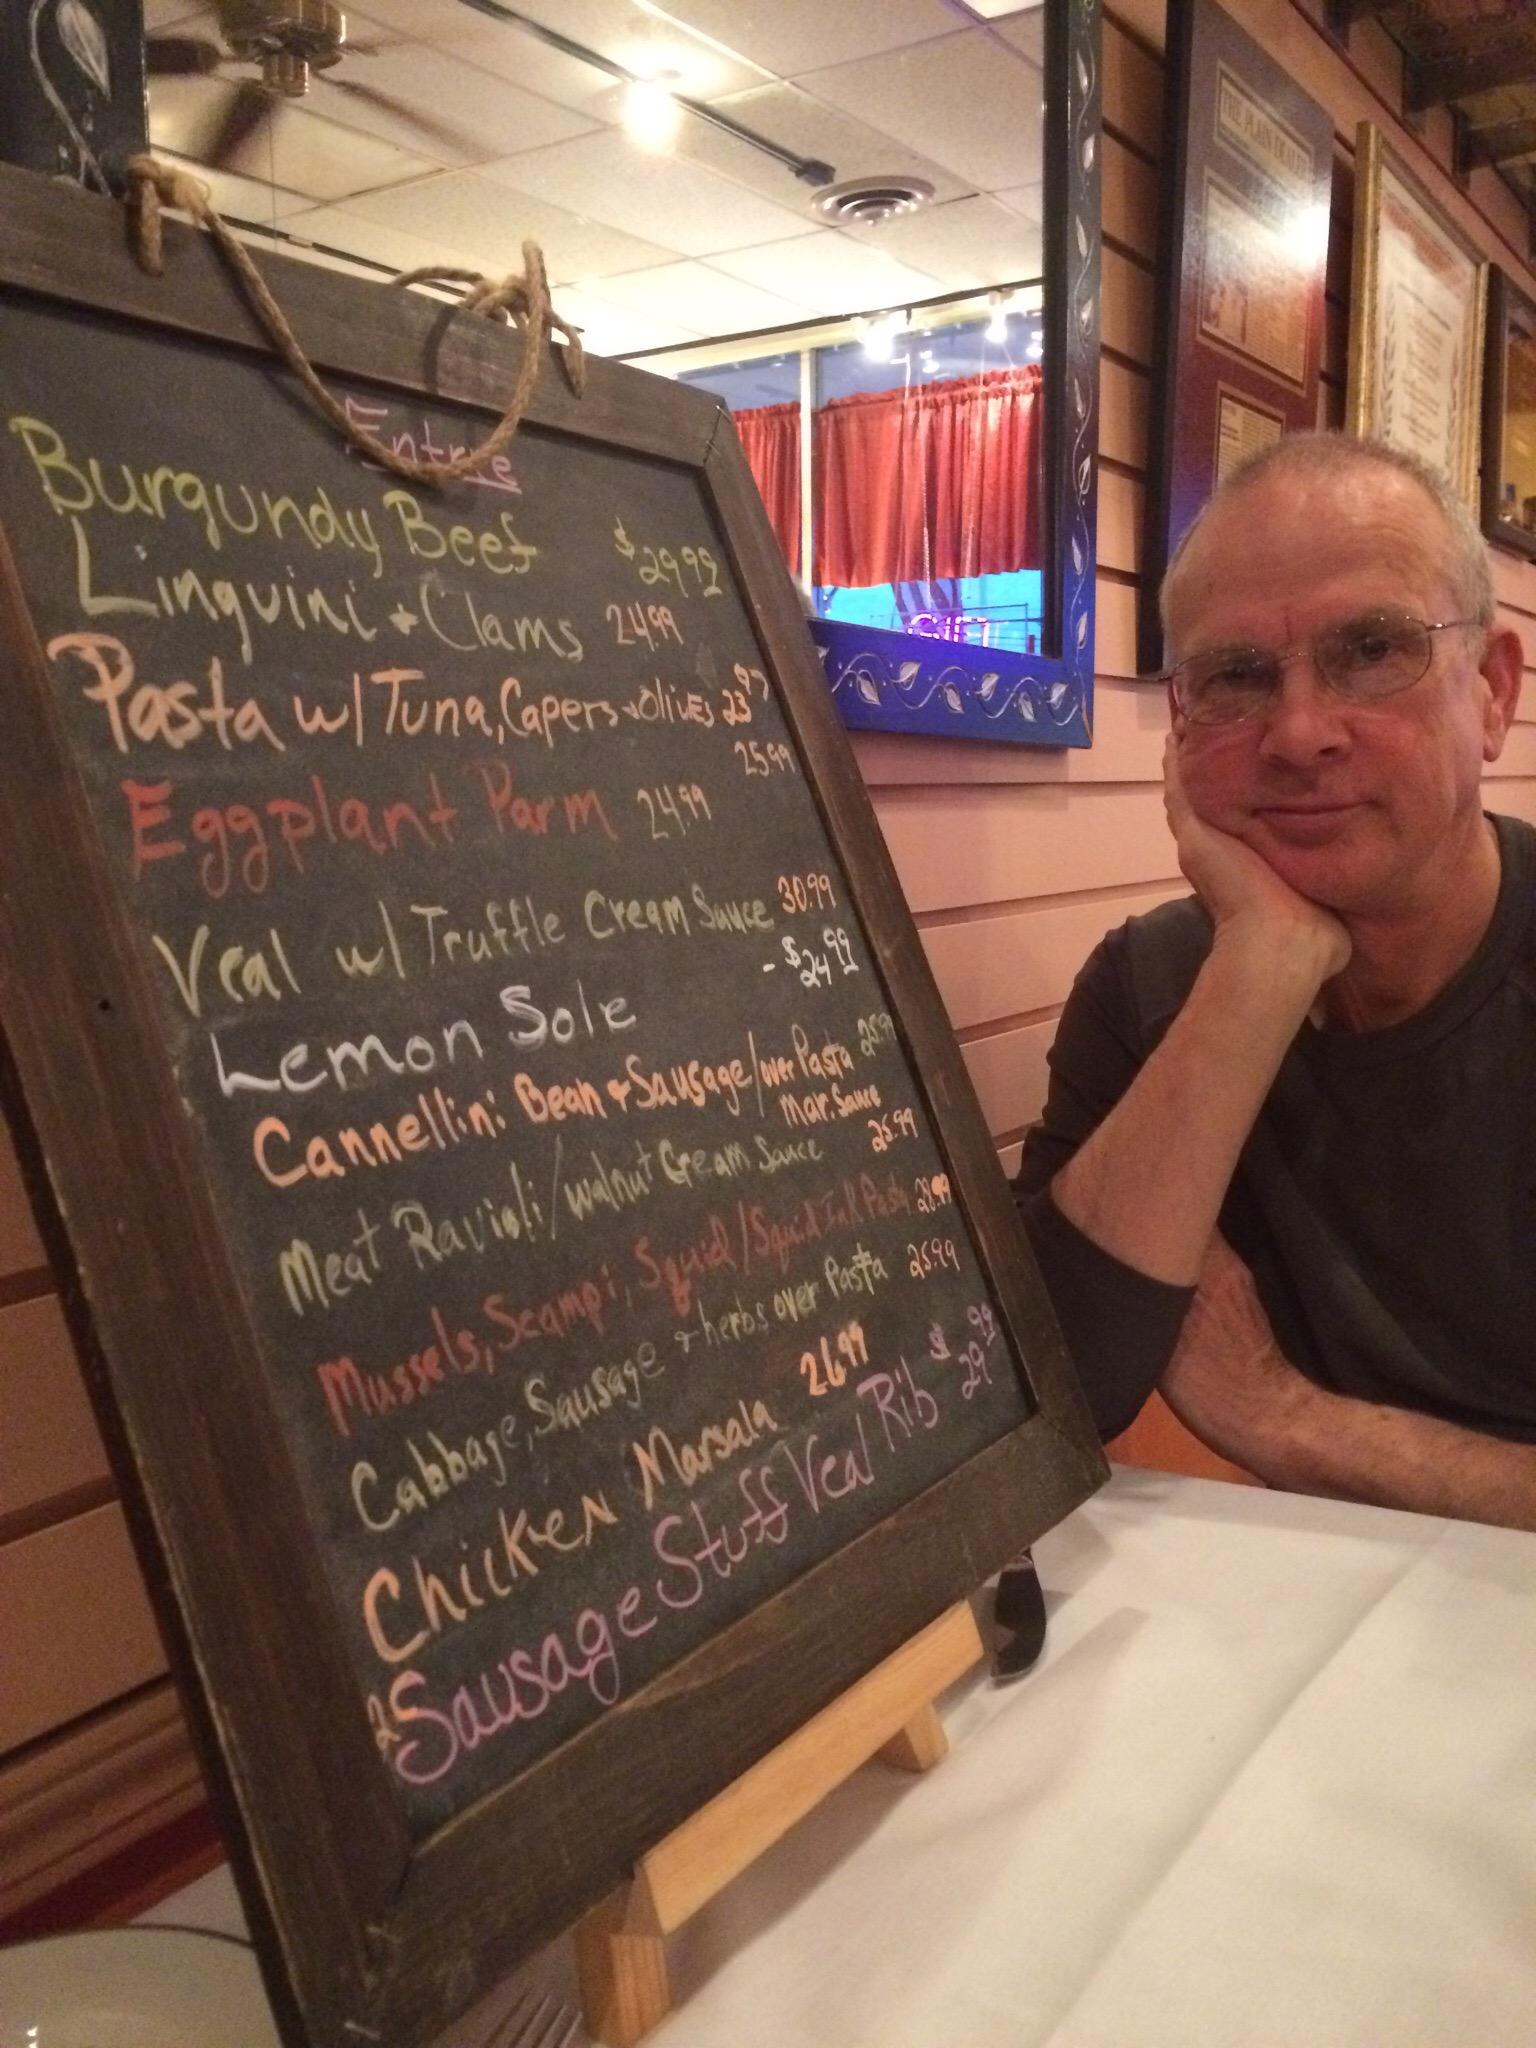 THE PLAIN DEALER
Entrie
Burgundy Beef $29.99
Linguini + Clams 24.99
Pasta w/ Tuna, Capers + Olives 23.97
25.99
Eggplant Parm 24.99
Veal w/ Truffle Cream Sauce 30.99
Lemon Sole - $24.99
Cannellini Bean + Sausage/over Pasta 25.99
Mar. Sauce
Meat Ravioli/walnut Cream Sauce 25.99
Mussels, Scampi, Squid/Squid Ink Pasta 28.99
Cabbage, Sausage + herbs over Pasta 25.99
Chicken Marsala 26.99
Sausage Stuff Veal Rib $29.99